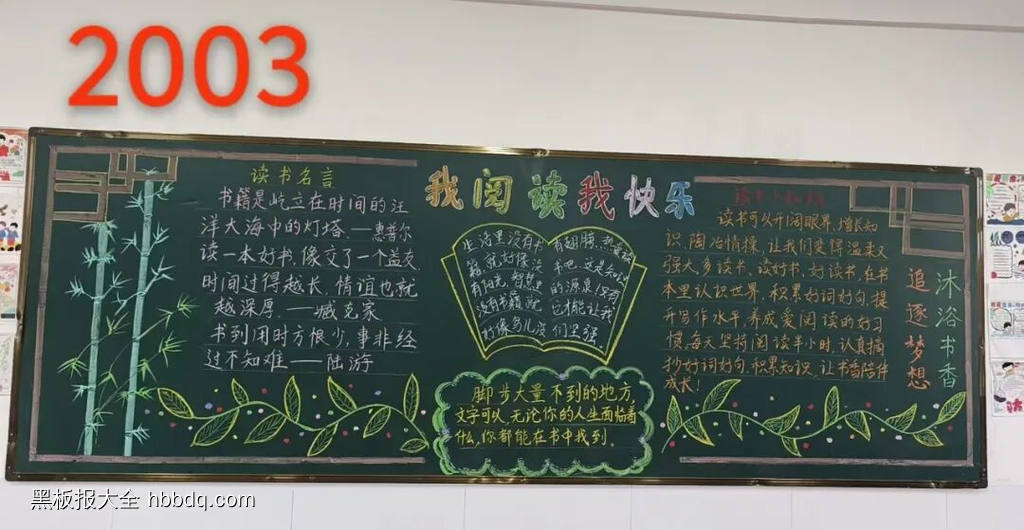 2003
我阅读我快乐
读书名言
书籍是屹立在时间的汪
洋大海中的灯塔.——惠普尔
读一本好书,像交了一个益友
时间过得越长,情谊也就
越深厚.——臧克家
书到用时方恨少,事非经
过不知难——陆游
生活里没有书
籍,就好像没
有阳光,智慧里
没有书籍,就
好像鸟儿没
有翅膀.热爱
书吧,这是知识
的源泉,只有
它才能让我
们坚强
脚步丈量不到的地方,
文字可以,无论你的人生面临着
什么,你都能在书中找到.
读书可以开阔眼界,增长知
识,陶冶情操,让我们变得温柔又
强大,多读书、读好书、好读书,在书
本里认识世界,积累好词好句,提
升写作水平,养成爱阅读的好习
惯,每天坚持阅读半小时,认真摘
抄好词好句,积累知识,让书香陪伴
成长!
沐浴书香
追逐梦想
黑板报大全 hbbdq.com